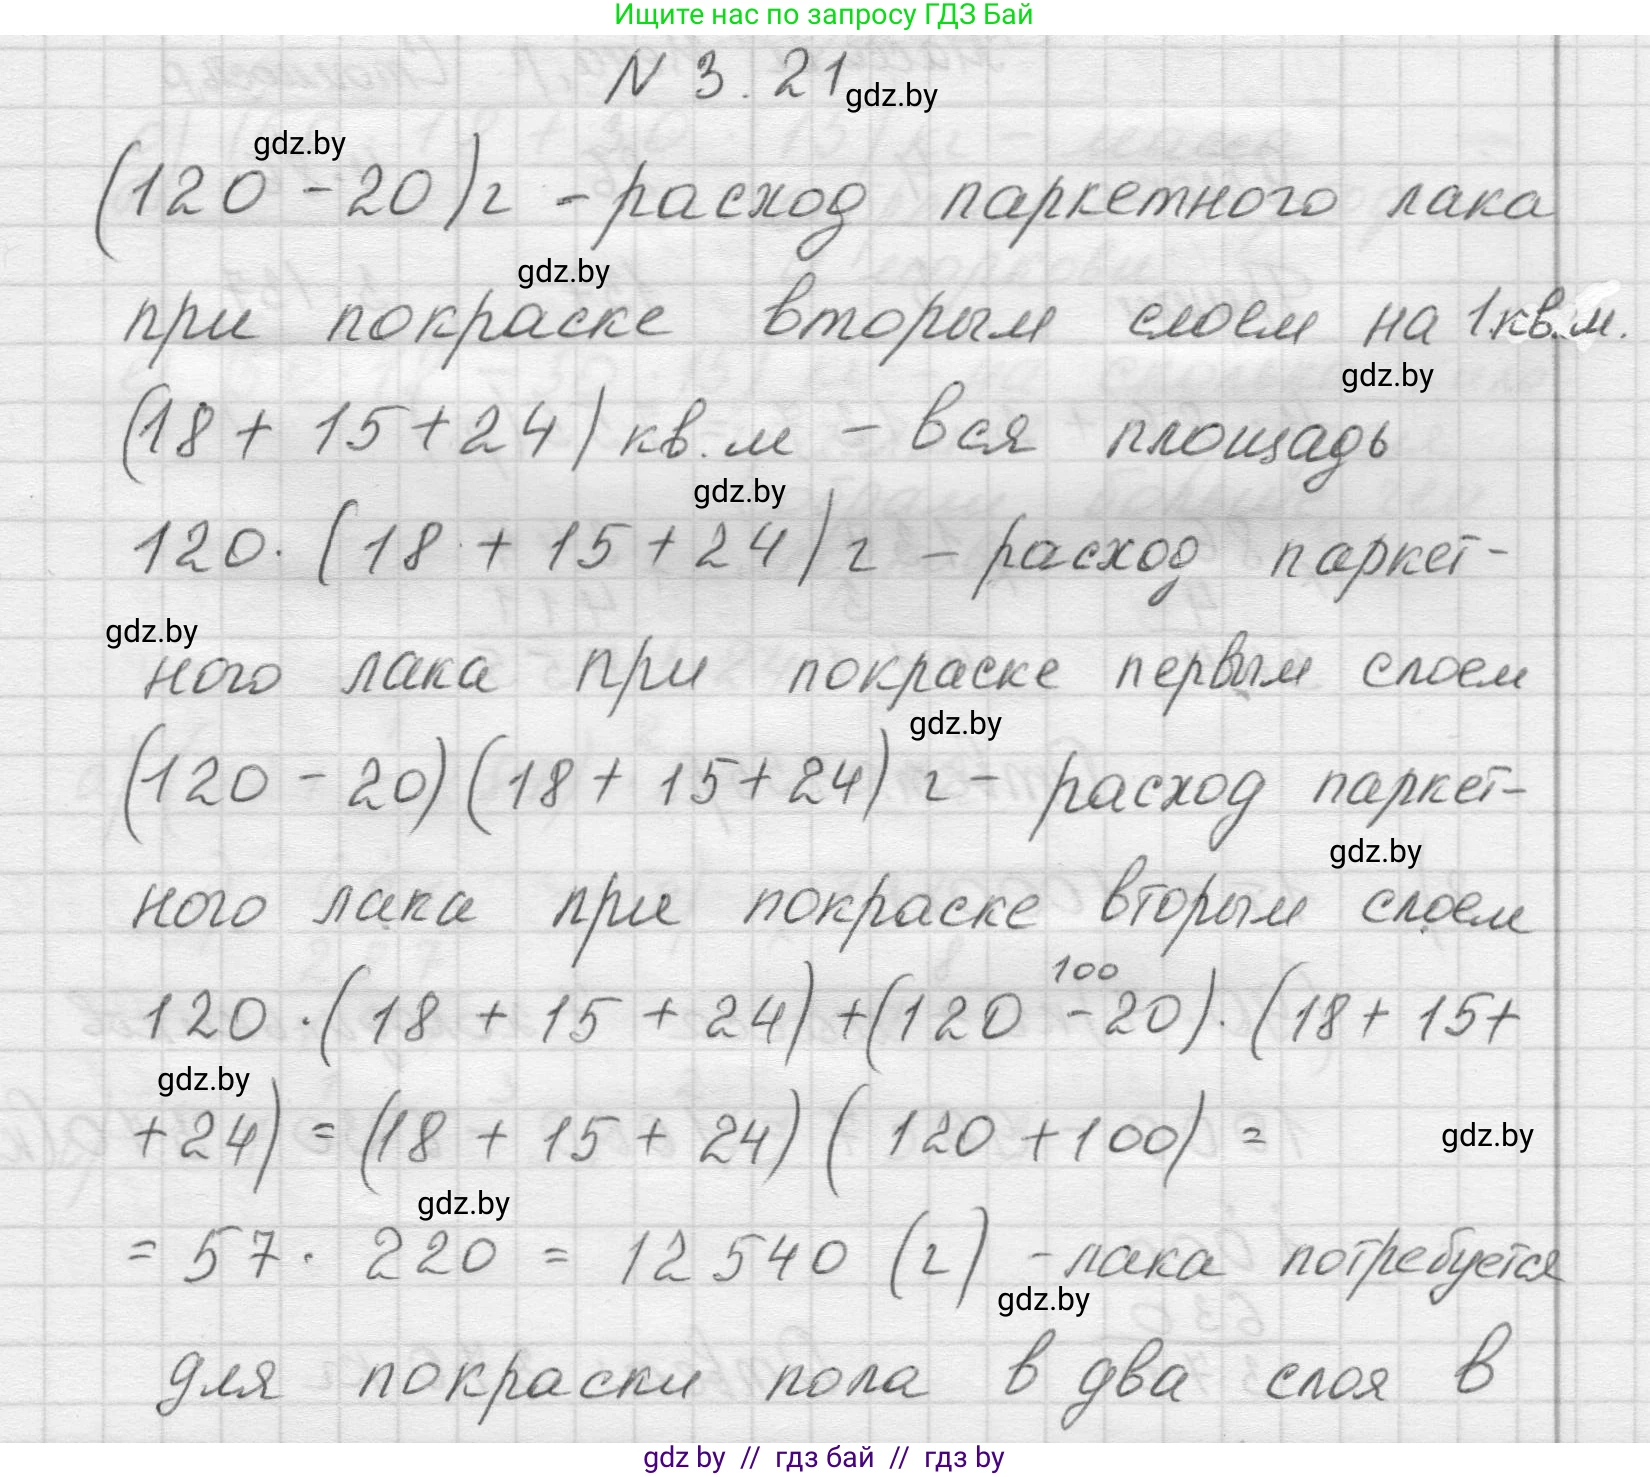 Ищите нас по запросу ГДЗ Бай
N 3.21
gdz.by
gdz.by
(120 - 20) г - расход паркетного лака
gdz.by
при покраске вторым слоем на 1 кв.м.
gdz.by
(18 + 15 + 24) кв.м - вся площадь
gdz.by
120 · (18 + 15 + 24) г - расход паркет-
gdz.by
ного лака при покраске первым слоем
gdz.by
(120 - 20) (18 + 15 + 24) г - расход паркет-
gdz.by
ного лака при покраске вторым слоем
100
120 · (18 + 15 + 24) + (120 - 20) · (18 + 15 +
gdz.by
+ 24) = (18 + 15 + 24) (120 + 100) =
gdz.by
gdz.by
= 57 · 220 = 12 540 (г) - лака потребуется
gdz.by
для покраски пола в два слоя в
gdz by // гдз бай // гдз by